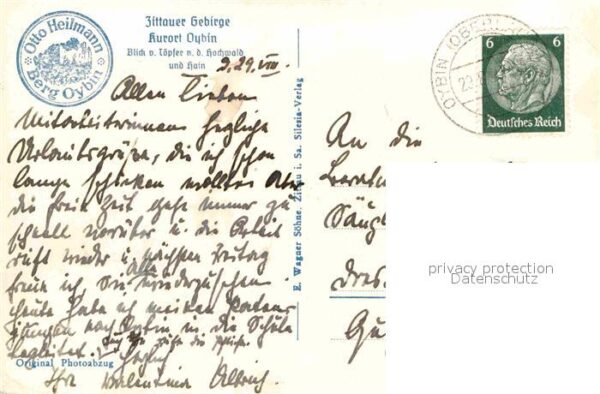 Otto Heilmann
Berg Oybin
Zittauer Gebirge
Kurort Oybin
Blick v. Töpfer n. d. Hochwald
und Hain
29. VIII.
Allen lieben
Mitarbeiterinnen herzliche
Urlaubsgrüße, die ich schon
lange schicken wollte. Aber
die freie Zeit geht immer zu
schnell vorüber u. die Arbeit
ruft wieder u. nächsten Freitag
freue ich, Sie alle wiederzusehen.
heute habe ich meinen
nach Oybin in die Schule
begleitet.
Herzlich
Ihre Valentina
Original Photoabzug
E. Wagner Söhne, Zittau i. Sa. Silesia-Verlag
OYBIN
6 6
Deutsches Reich
An die
Säugl
Dres
privacy protection
Datenschutz